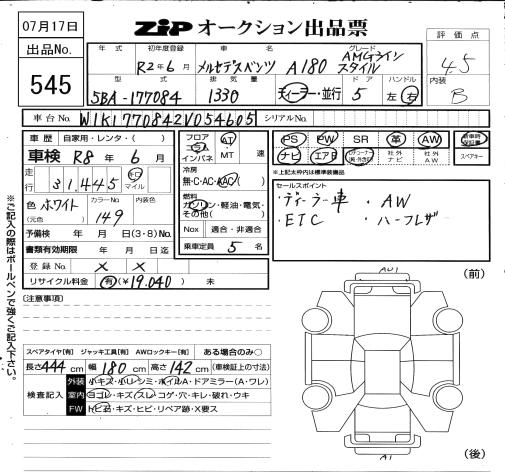 07月17日
出品No.
545
ZIP オークション出品票
年式 初年度登録 車名 グレード
R2年6月 メルセデスベンツ A180 AMGライン スタイル
型式 排気量 ドア ハンドル
5BA-177084 1330 ディーラー・並行 5 左 右
評価点
4.5
内装
B
車台No. W1K1770842V054605 シリアルNo.
車歴 自家用・レンタ・( )
車検 R8年6月
走行 31,445 キロ マイル
色 ホワイト カラーNo. 149 内装色
(元色)
予備検 年 月 日(3・8)No.
書類有効期限 年 月 日迄
登録No. × ×
リサイクル料金 有(¥19,040)
フロア コラム インパネ AT ・MT 速
冷房
無・C・AC・AAC( )
燃料
ガソリン・軽油・電気・その他( )
Nox 適合・非適合
乗車定員 5名
PS PW SR 革 AW 新車時保証書
ナビ エアB 社外ナビ 社外AW スペアキー
※上記太枠内は標準装備品
セールスポイント
・ディーラー車 ・AW
・ETC ・ハーフレザー
(注意事項)
スペアタイヤ[有] ジャッキ工具[有] AWロックキー[有] ある場合のみ○
長さ444cm 幅180cm 高さ142cm (車検証上の寸法)
検査記入
外装 小キズ・小凹・シミ・ホイルA・ドアミラー(A・ワレ)
室内 ヨゴレ・キズ・スレ・コゲ・穴・キレ・破れ・ウキ
FW トビ石・キズ・ヒビ・リペア跡・X要ス
※ご記入の際はボールペンで強くご記入下さい。
(前)
AU1
A1
(後)